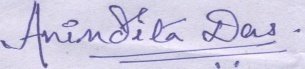 Anindita Das.